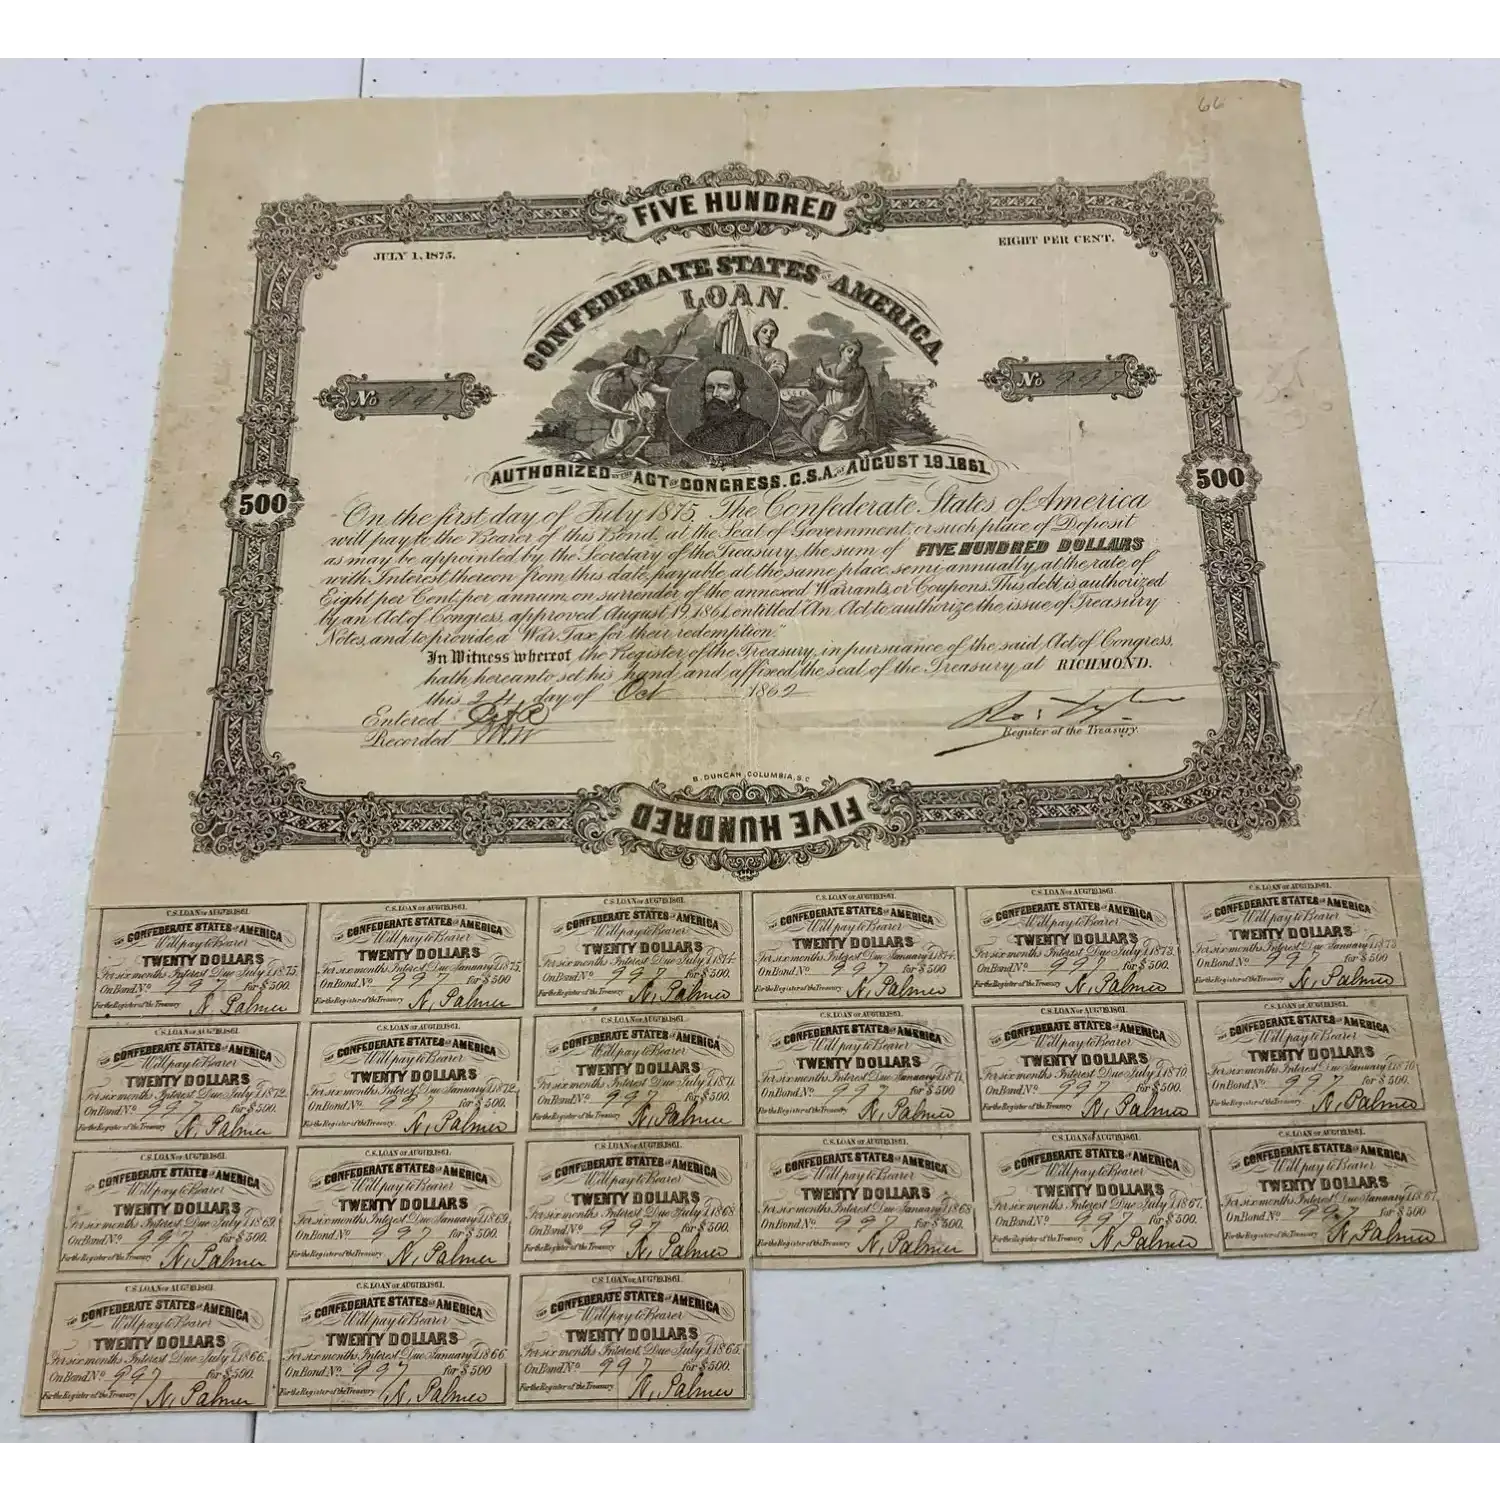 66
FIVE HUNDRED
JULY 1, 1875.
EIGHT PER CENT.
CONFEDERATE STATES OF AMERICA
LOAN.
No 997
No 997
AUTHORIZED BY THE ACT OF CONGRESS, C.S.A. OF AUGUST 19.1861.
500
500
On the first day of July 1875, The Confederate States of America
will pay to the Bearer of this Bond, at the Seat of Government, or such place of Deposit
as may be appointed by the Secretary of the Treasury, the sum of FIVE HUNDRED DOLLARS
with Interest thereon from this date, payable at the same place, semi-annually, at the rate of
Eight per Cent, per annum, on surrender of the annexed Warrants, or Coupons. This debt is authorized
by an Act of Congress, approved August 19, 1861, entitled "An Act to authorize the issue of Treasury
Notes, and to provide a War Tax for their redemption."
In Witness whereof the Register of the Treasury, in pursuance of the said Act of Congress,
hath hereunto set his hand and affixed the seal of the Treasury, at RICHMOND.
this 24 day of Oct 1862
Entered
Recorded
Ro: Tyler
Register of the Treasury
B. DUNCAN, COLUMBIA, S.C.
FIVE HUNDRED
C.S. LOAN OF AUG! 19, 1861.
THE CONFEDERATE STATES OF AMERICA
Will pay to Bearer
TWENTY DOLLARS
For six months Interest Due July 1, 1875.
On Bond No 997 for $500.
For the Register of the Treasury N. Palmer
C.S. LOAN OF AUG! 19, 1861.
THE CONFEDERATE STATES OF AMERICA
Will pay to Bearer
TWENTY DOLLARS
For six months Interest Due January 1, 1875.
On Bond No 997 for $500
For the Register of the Treasury N. Palmer
C.S. LOAN OF AUG! 19, 1861.
THE CONFEDERATE STATES OF AMERICA
Will pay to Bearer
TWENTY DOLLARS
For six months Interest Due July 1, 1874.
On Bond No 997 for $500.
For the Register of the Treasury N. Palmer
C.S. LOAN OF AUG! 19, 1861.
THE CONFEDERATE STATES OF AMERICA
Will pay to Bearer
TWENTY DOLLARS
For six months Interest Due January 1, 1874.
On Bond No 997 for $500
For the Register of the Treasury N. Palmer
C.S. LOAN OF AUG! 19, 1861.
THE CONFEDERATE STATES OF AMERICA
Will pay to Bearer
TWENTY DOLLARS
For six months Interest Due July 1, 1873.
On Bond No 997 for $500.
For the Register of the Treasury N. Palmer
C.S. LOAN OF AUG! 19, 1861.
THE CONFEDERATE STATES OF AMERICA
Will pay to Bearer
TWENTY DOLLARS
For six months Interest Due January 1, 1873
On Bond No 997 for $500
For the Register of the Treasury N. Palmer
C.S. LOAN OF AUG! 19, 1861.
THE CONFEDERATE STATES OF AMERICA
Will pay to Bearer
TWENTY DOLLARS
For six months Interest Due July 1, 1872.
On Bond No 997 for $500.
For the Register of the Treasury N. Palmer
C.S. LOAN OF AUG! 19, 1861.
THE CONFEDERATE STATES OF AMERICA
Will pay to Bearer
TWENTY DOLLARS
For six months Interest Due January 1, 1872.
On Bond No 997 for $500.
For the Register of the Treasury N. Palmer
C.S. LOAN OF AUG! 19, 1861.
THE CONFEDERATE STATES OF AMERICA
Will pay to Bearer
TWENTY DOLLARS
For six months Interest Due July 1, 1871.
On Bond No 997 for $500.
For the Register of the Treasury N. Palmer
C.S. LOAN OF AUG! 19, 1861.
THE CONFEDERATE STATES OF AMERICA
Will pay to Bearer
TWENTY DOLLARS
For six months Interest Due January 1, 1871.
On Bond No 997 for $500.
For the Register of the Treasury N. Palmer
C.S. LOAN OF AUG! 19, 1861.
THE CONFEDERATE STATES OF AMERICA
Will pay to Bearer
TWENTY DOLLARS
For six months Interest Due July 1, 1870.
On Bond No 997 for $500.
For the Register of the Treasury N. Palmer
C.S. LOAN OF AUG! 19, 1861.
THE CONFEDERATE STATES OF AMERICA
Will pay to Bearer
TWENTY DOLLARS
For six months Interest Due January 1, 1870.
On Bond No 997 for $500
For the Register of the Treasury N. Palmer
C.S. LOAN OF AUG! 19, 1861.
THE CONFEDERATE STATES OF AMERICA
Will pay to Bearer
TWENTY DOLLARS
For six months Interest Due July 1, 1869.
On Bond No 997 for $500.
For the Register of the Treasury N. Palmer
C.S. LOAN OF AUG! 19, 1861.
THE CONFEDERATE STATES OF AMERICA
Will pay to Bearer
TWENTY DOLLARS
For six months Interest Due January 1, 1869.
On Bond No 997 for $500.
For the Register of the Treasury N. Palmer
C.S. LOAN OF AUG! 19, 1861.
THE CONFEDERATE STATES OF AMERICA
Will pay to Bearer
TWENTY DOLLARS
For six months Interest Due July 1, 1868
On Bond No 997 for $500.
For the Register of the Treasury N. Palmer
C.S. LOAN OF AUG! 19, 1861.
THE CONFEDERATE STATES OF AMERICA
Will pay to Bearer
TWENTY DOLLARS
For six months Interest Due January 1, 1868
On Bond No 997 for $500.
For the Register of the Treasury N. Palmer
C.S. LOAN OF AUG! 19, 1861.
THE CONFEDERATE STATES OF AMERICA
Will pay to Bearer
TWENTY DOLLARS
For six months Interest Due July 1, 1867.
On Bond No 997 for $500.
For the Register of the Treasury N. Palmer
C.S. LOAN OF AUG! 19, 1861.
THE CONFEDERATE STATES OF AMERICA
Will pay to Bearer
TWENTY DOLLARS
For six months Interest Due January 1, 1867.
On Bond No 997 for $500
For the Register of the Treasury N. Palmer
C.S. LOAN OF AUG! 19, 1861.
THE CONFEDERATE STATES OF AMERICA
Will pay to Bearer
TWENTY DOLLARS
For six months Interest Due July 1, 1866.
On Bond No 997 for $500.
For the Register of the Treasury N. Palmer
C.S. LOAN OF AUG! 19, 1861.
THE CONFEDERATE STATES OF AMERICA
Will pay to Bearer
TWENTY DOLLARS
For six months Interest Due January 1, 1866
On Bond No 997 for $500
For the Register of the Treasury N. Palmer
C.S. LOAN OF AUG! 19, 1861.
THE CONFEDERATE STATES OF AMERICA
Will pay to Bearer
TWENTY DOLLARS
For six months Interest Due July 1, 1865.
On Bond No 997 for $500.
For the Register of the Treasury N. Palmer